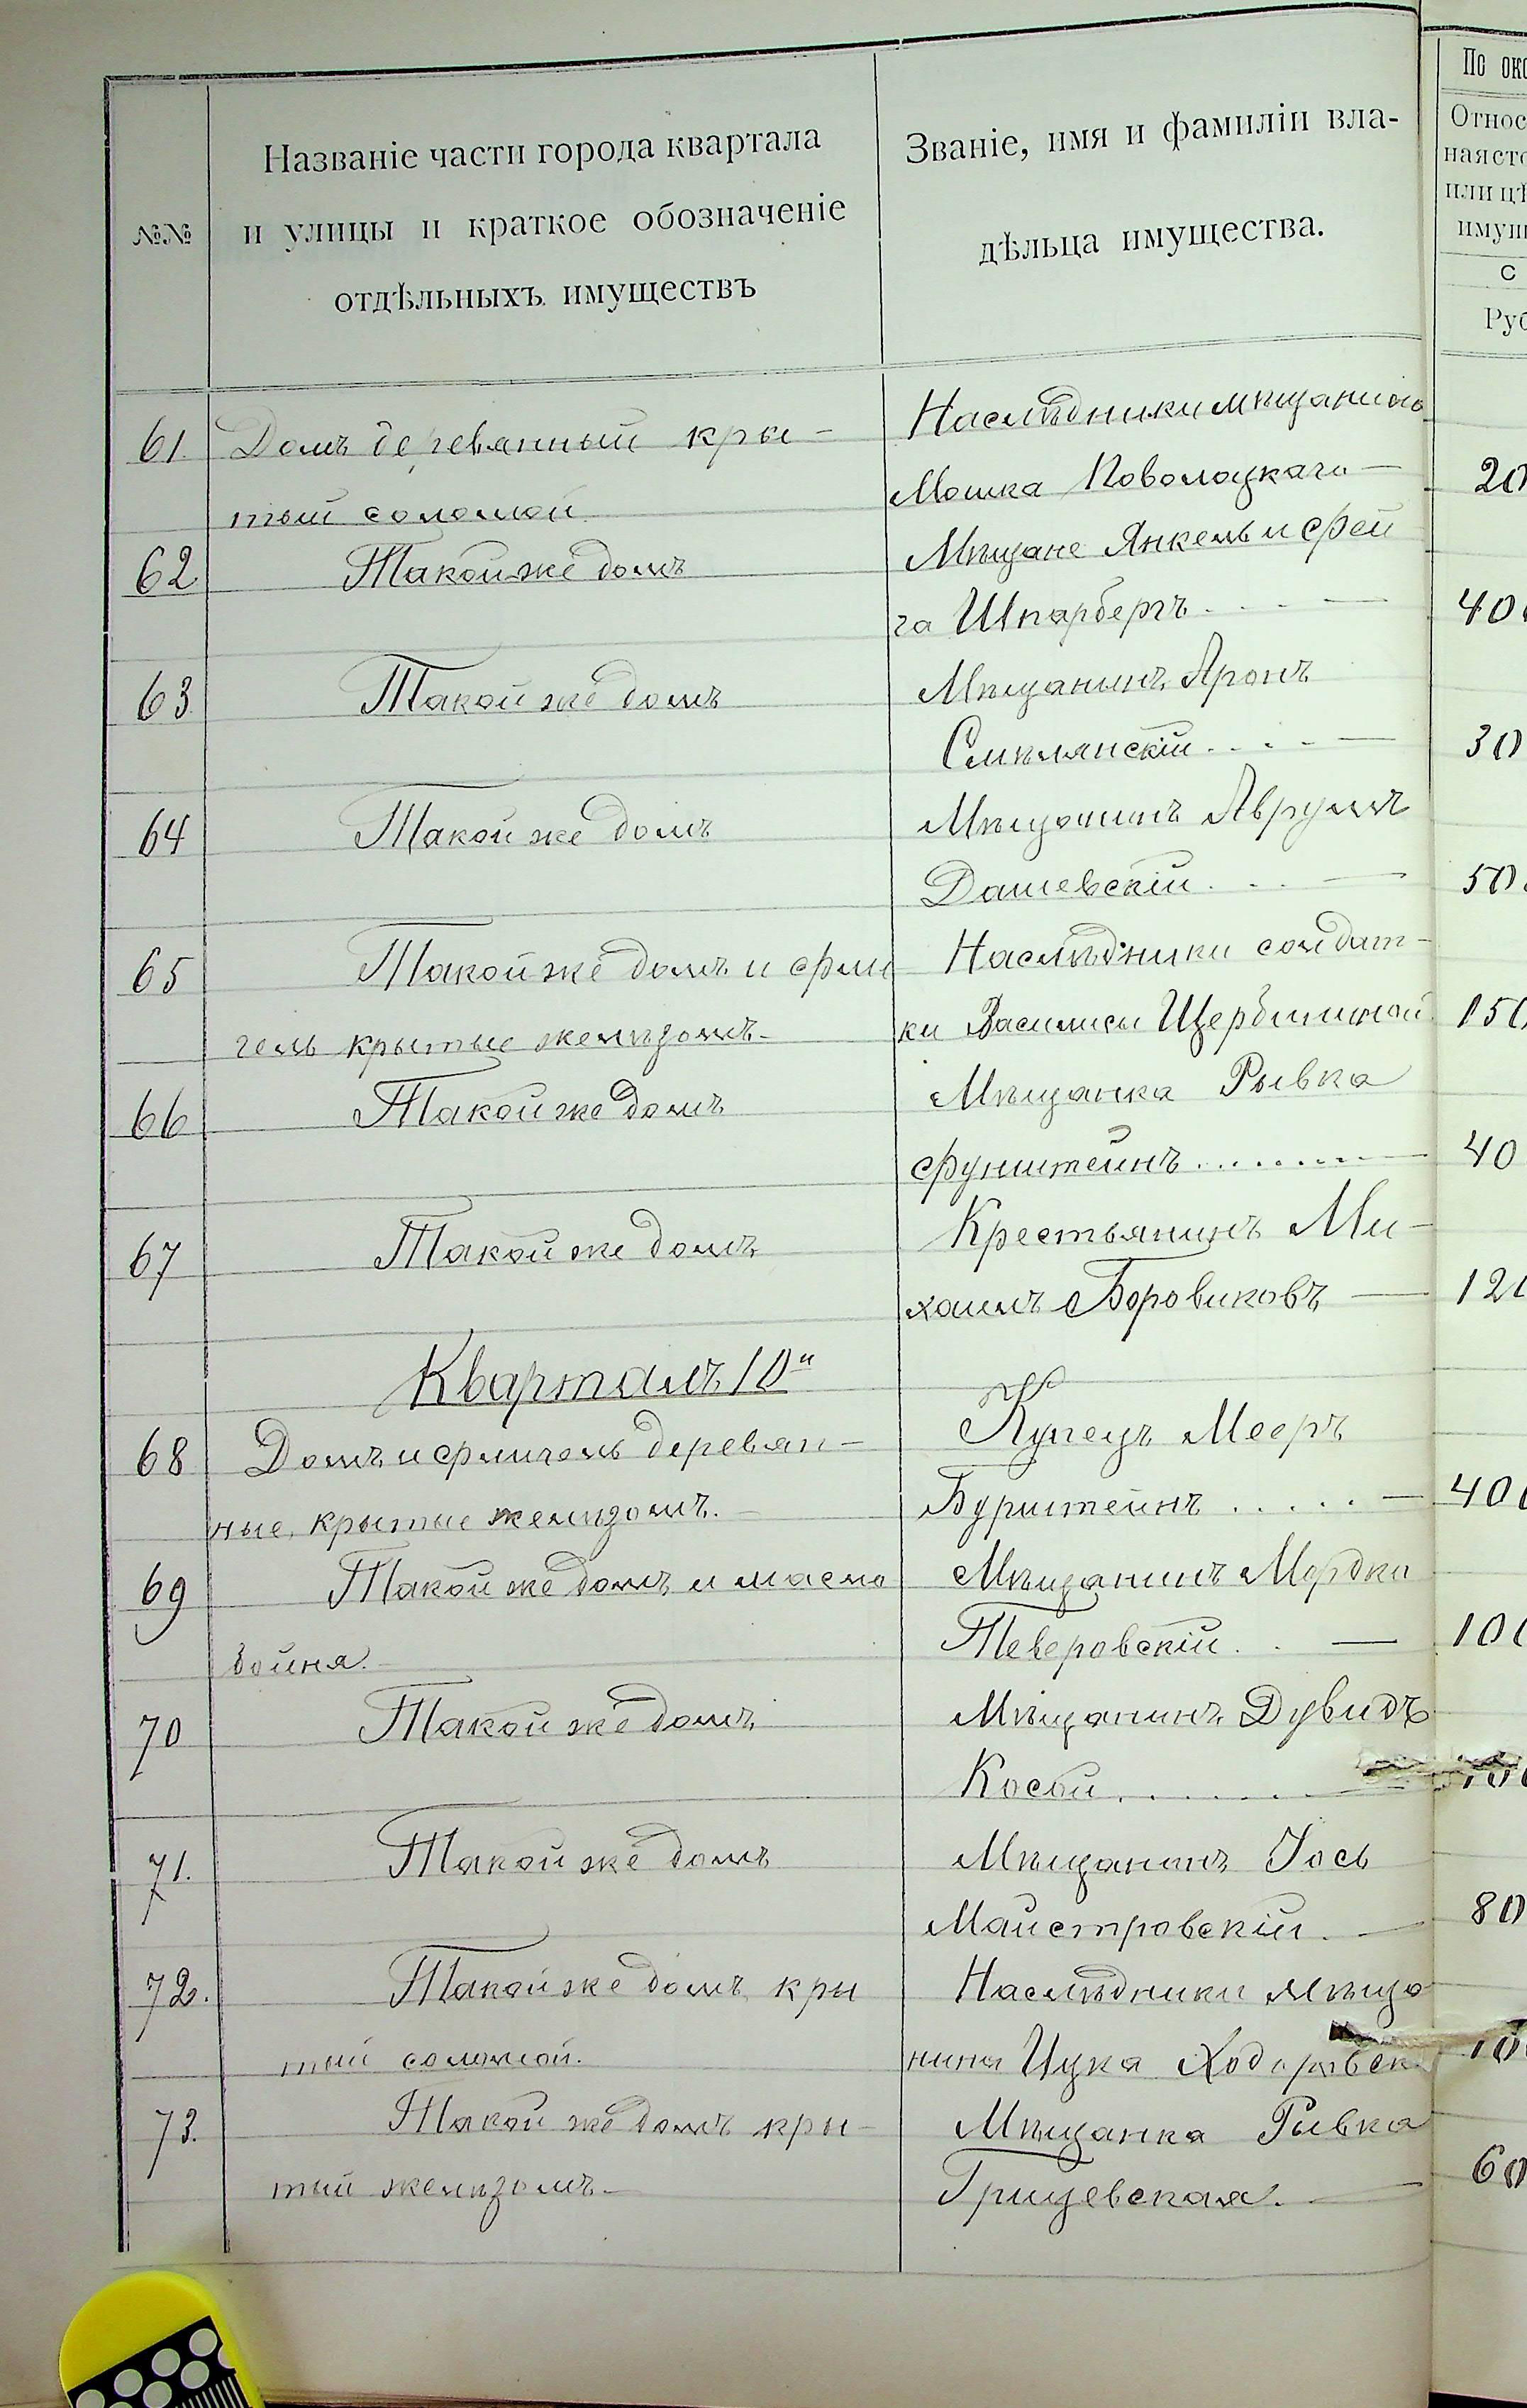 №№
Названіе части города квартала
и улицы и краткое обозначеніе
отдѣльныхъ имуществъ
Званіе, имя и фамиліи вла-
дѣльца имущества.
По око
Относ
ная сто
или цѣ
имущ
С
Руб
61. Домъ деревянный кры- Наслѣдники мѣщанина
тый соломой. Мошка Поволоцкаго — 20
62. Такой же домъ Мѣщане Янкель и Фей
га Шпарбергъ . . . — 40
63. Такой же домъ Мѣщанинъ Аронъ
Смѣлянскій . . . . — 30
64 Такой же домъ Мѣщанинъ Аврумъ
Дашевскій . . . — 50
65 Такой же домъ и фли Наслѣдники солдат-
гель крытые желѣзомъ. ки Василисы Щербининой 150
66 Такой же домъ Мѣщанка Рывка
Фунштейнъ . . . . . . . . — 40
67 Такой же домъ Крестьянинъ Ми-
хаилъ Боровиковъ — 120
Кварталъ 10й
68 Домъ и флигель деревян- Купецъ Мееръ
ные, крытые желѣзомъ. — Бурштейнъ . . . . . — 400
69 Такой же домъ и масло Мѣщанинъ Мордко
бойня. Теверовскій . . — 100
70 Такой же домъ Мѣщанинъ Дувидъ
Косой . . . . . . —
71. Такой же домъ Мѣщанинъ Іось
Майстровскій . — 80
72. Такой же домъ кры Наслѣдники мѣща
тый соломой. нина Ицка Ходоровск 10
73. Такой же домъ кры- Мѣщанка Рывка
тый желѣзомъ. — Грищевская. — 60